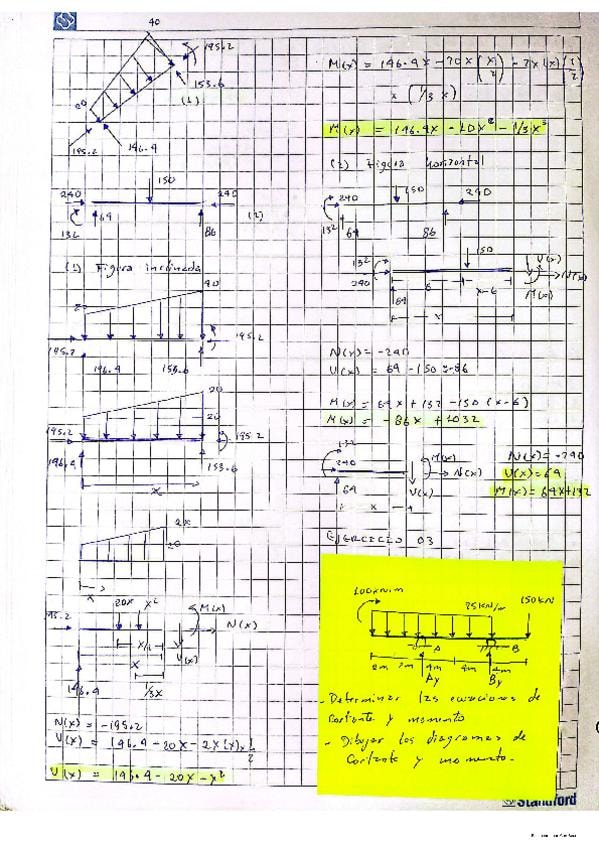 40
195.2
20
153.6
(1)
195.2
146.4
150
240
240
64
(2)
132
86
(1) Figura inclinada
40
20
195.2
195.2
146.4
153.6
20
20
195.2
195.2
146.4
153.6
x
2x
20
x
20x x²
M(x)
N(x)
x/2
V(x)
x
1/3x
146.4
N(x) = -195.2
V(x) = 146.4 - 20x - 2x(x) x 1/2
V(x) = 146.4 - 20x - x²
M(x) = 146.4x - 20x (x/2) - 2x(x)(1/2)
x (1/3 x)
M(x) = 146.4x - 10x² - 1/3x³
(2) Figura horizontal
240
150
240
132
64
86
150
132
V(x)
240
N(x)
6
x-6
M(x)
64
x
N(x) = -240
V(x) = 64 - 150 = -86
M(x) = 64x + 132 - 150 (x-6)
M(x) = -86x + 1032
132
240
M(x)
N(x)
64
V(x)
x
N(x) = -240
V(x) = 64
M(x) = 64x+132
EJERCICIO 03
100KN.m
25KN/m
150KN
A
B
2m 2m 4m 4m 4m
Ay
By
- Determinar las ecuaciones de
cortante y momento
- Dibujar los diagramas de
cortante y momento.
Standford